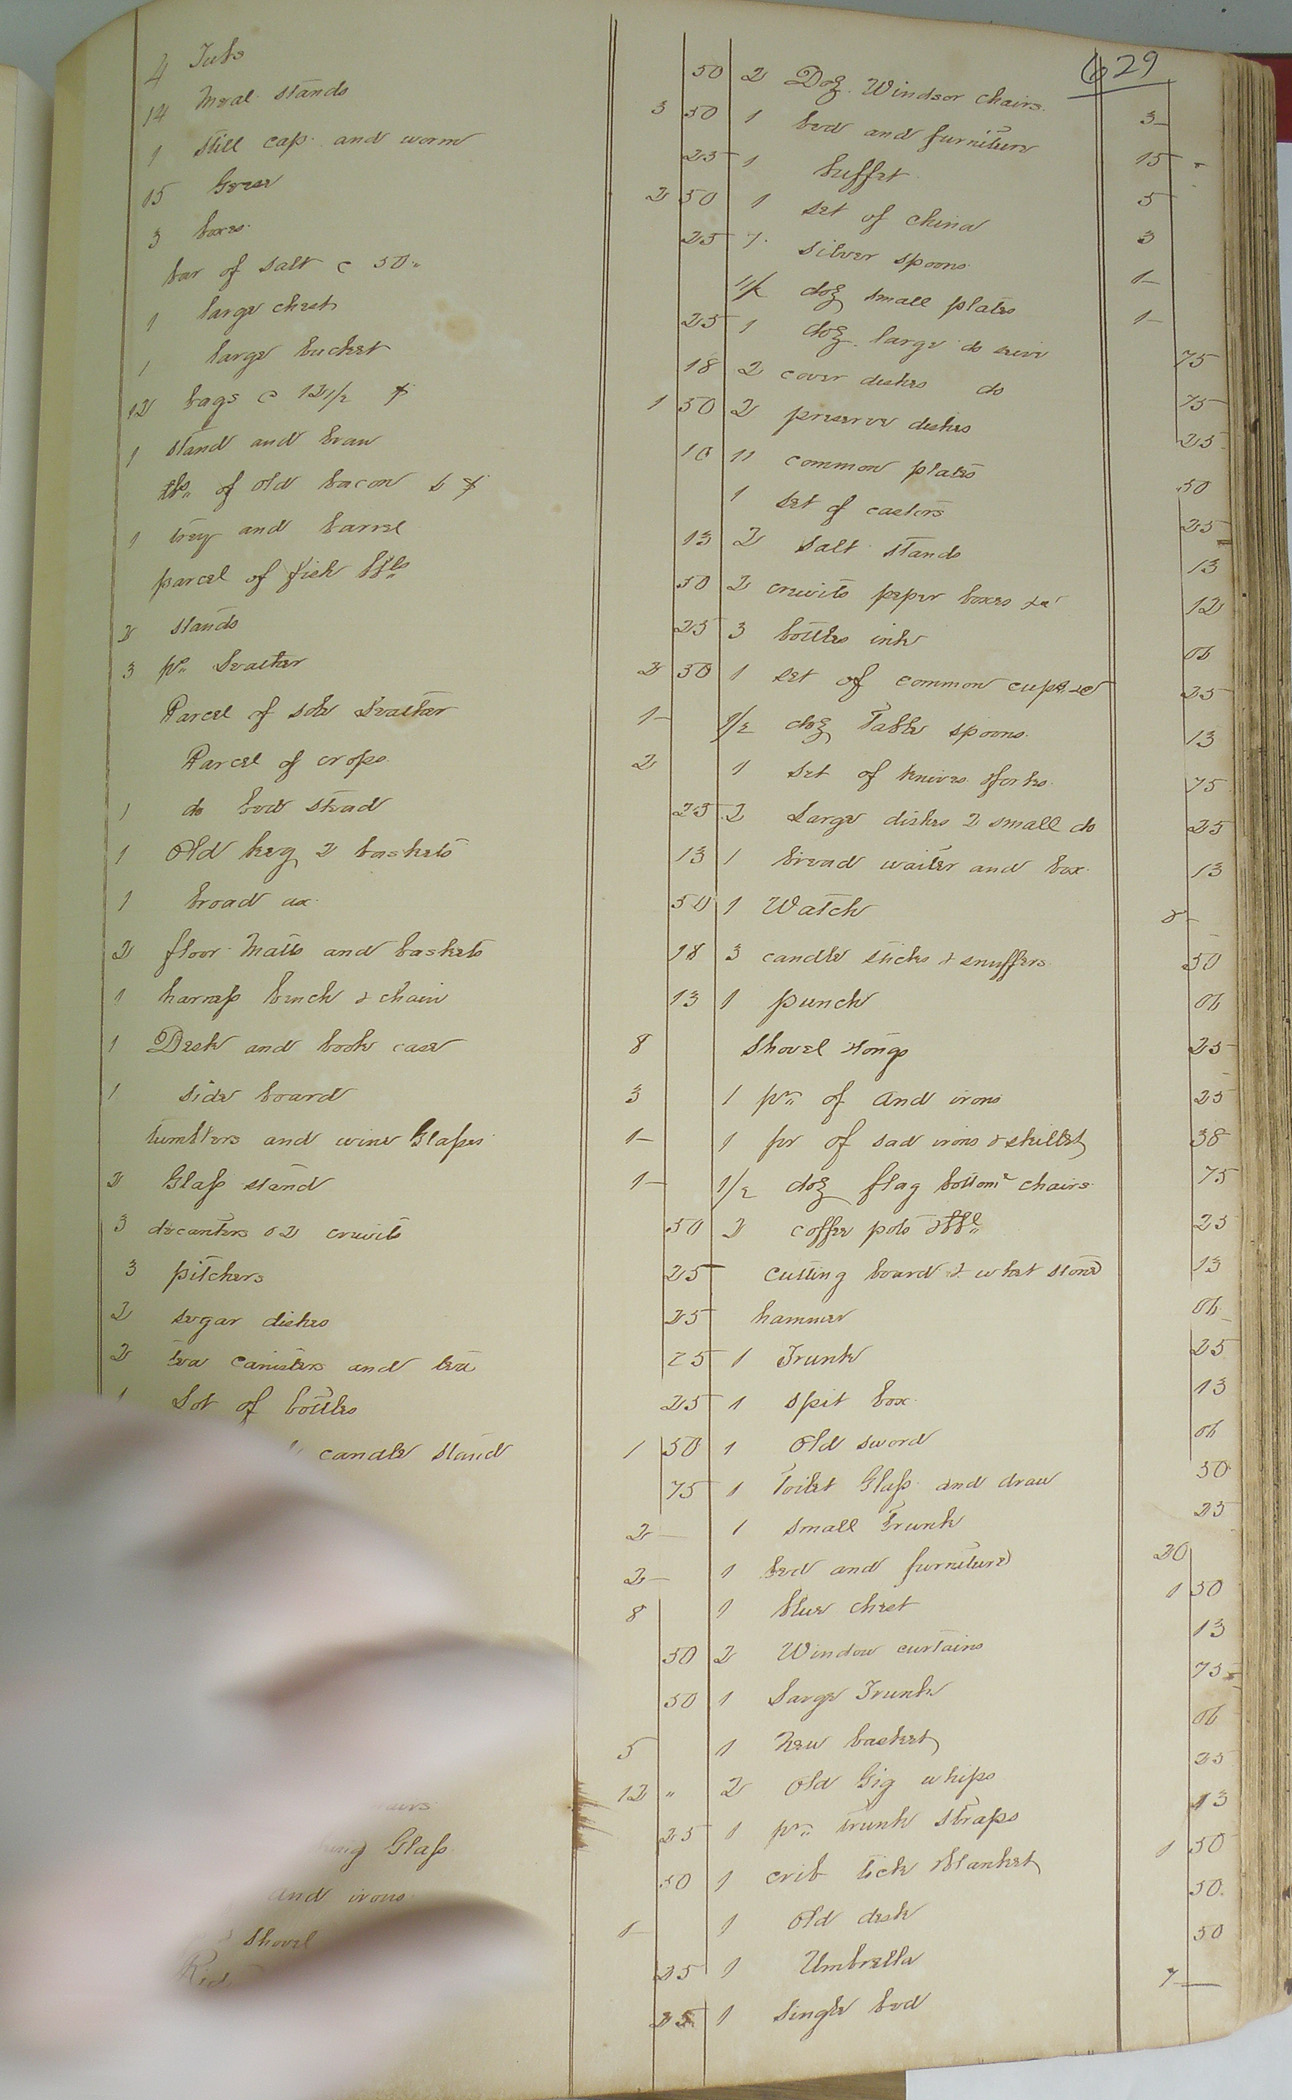 629
4 Tubs 50
14 meal stands 3 50
1 still cap and worm 25
15 Geese 2 50
3 boxes 25
bar of salt c 50
1 large chest 25
1 large bucket 18
12 bags c 12 1/2 1 50
1 stand and bran 10
lbs of old bacon
1 trey and barrel 13
parcel of fish bbls 50
2 stands 25
3 ps Leather 2 50
Parcel of sole Leather 1-
Parcel of crops 2
1 do bed stead 25
1 Old keg 2 baskets 13
1 broad ax 50
2 floor matts and baskets 18
1 harness bench & chain 13
1 Desk and book case 8
1 side board 3
tumblers and wine Glasses 1-
2 Glass stand 1-
3 decanters & 2 cruits 50
3 pitchers 25
2 sugar dishes 25
2 tea canisters and tea 25
1 Lot of bottles 25
candle stand 1 50
75
2-
2-
8
50
50
5
12 "
Glass 25
and irons 50
shovel 1-
25
25
2 Doz. Windsor chairs 3-
1 bed and furniture 15
1 buffet 5
1 set of china 3
7 silver spoons 1-
1/2 doz small plates 1-
1 doz. large do 75
2 cover dishes do 75
2 preserve dishes 25
11 common plates 50
1 set of castors 25
2 salt stands 13
2 cruits peper boxes &c 12
3 bottles ink 06
1 set of common cups &c 25
1/2 doz Table spoons 13
1 set of knives &forks 75
2 Large dishes 2 small do 25
1 bread waiter and box 13
1 Watch 8-
3 candle sticks & snuffers 50
1 punch 06
shovel &tongs 25
1 pr of and irons 25
1 pr of sad irons & skillet 38
1/2 doz flag bottom chairs 75
2 coffee pots &bbl 25
cutting board & whet stone 13
hammer 06
1 Trunk 25
1 spit box 13
1 Old sword 06
1 Toilet Glass and draw 50
1 small Trunk 25
1 bed and furniture 20
1 blue chest 1 50
2 Window curtains 13
1 Large Trunk 75
1 New basket 06
2 Old Gig whips 25
1 pr trunk straps 13
1 crib tick &blanket 1 50
1 Old desk 50
1 Umbrella 50
1 single bed 7-